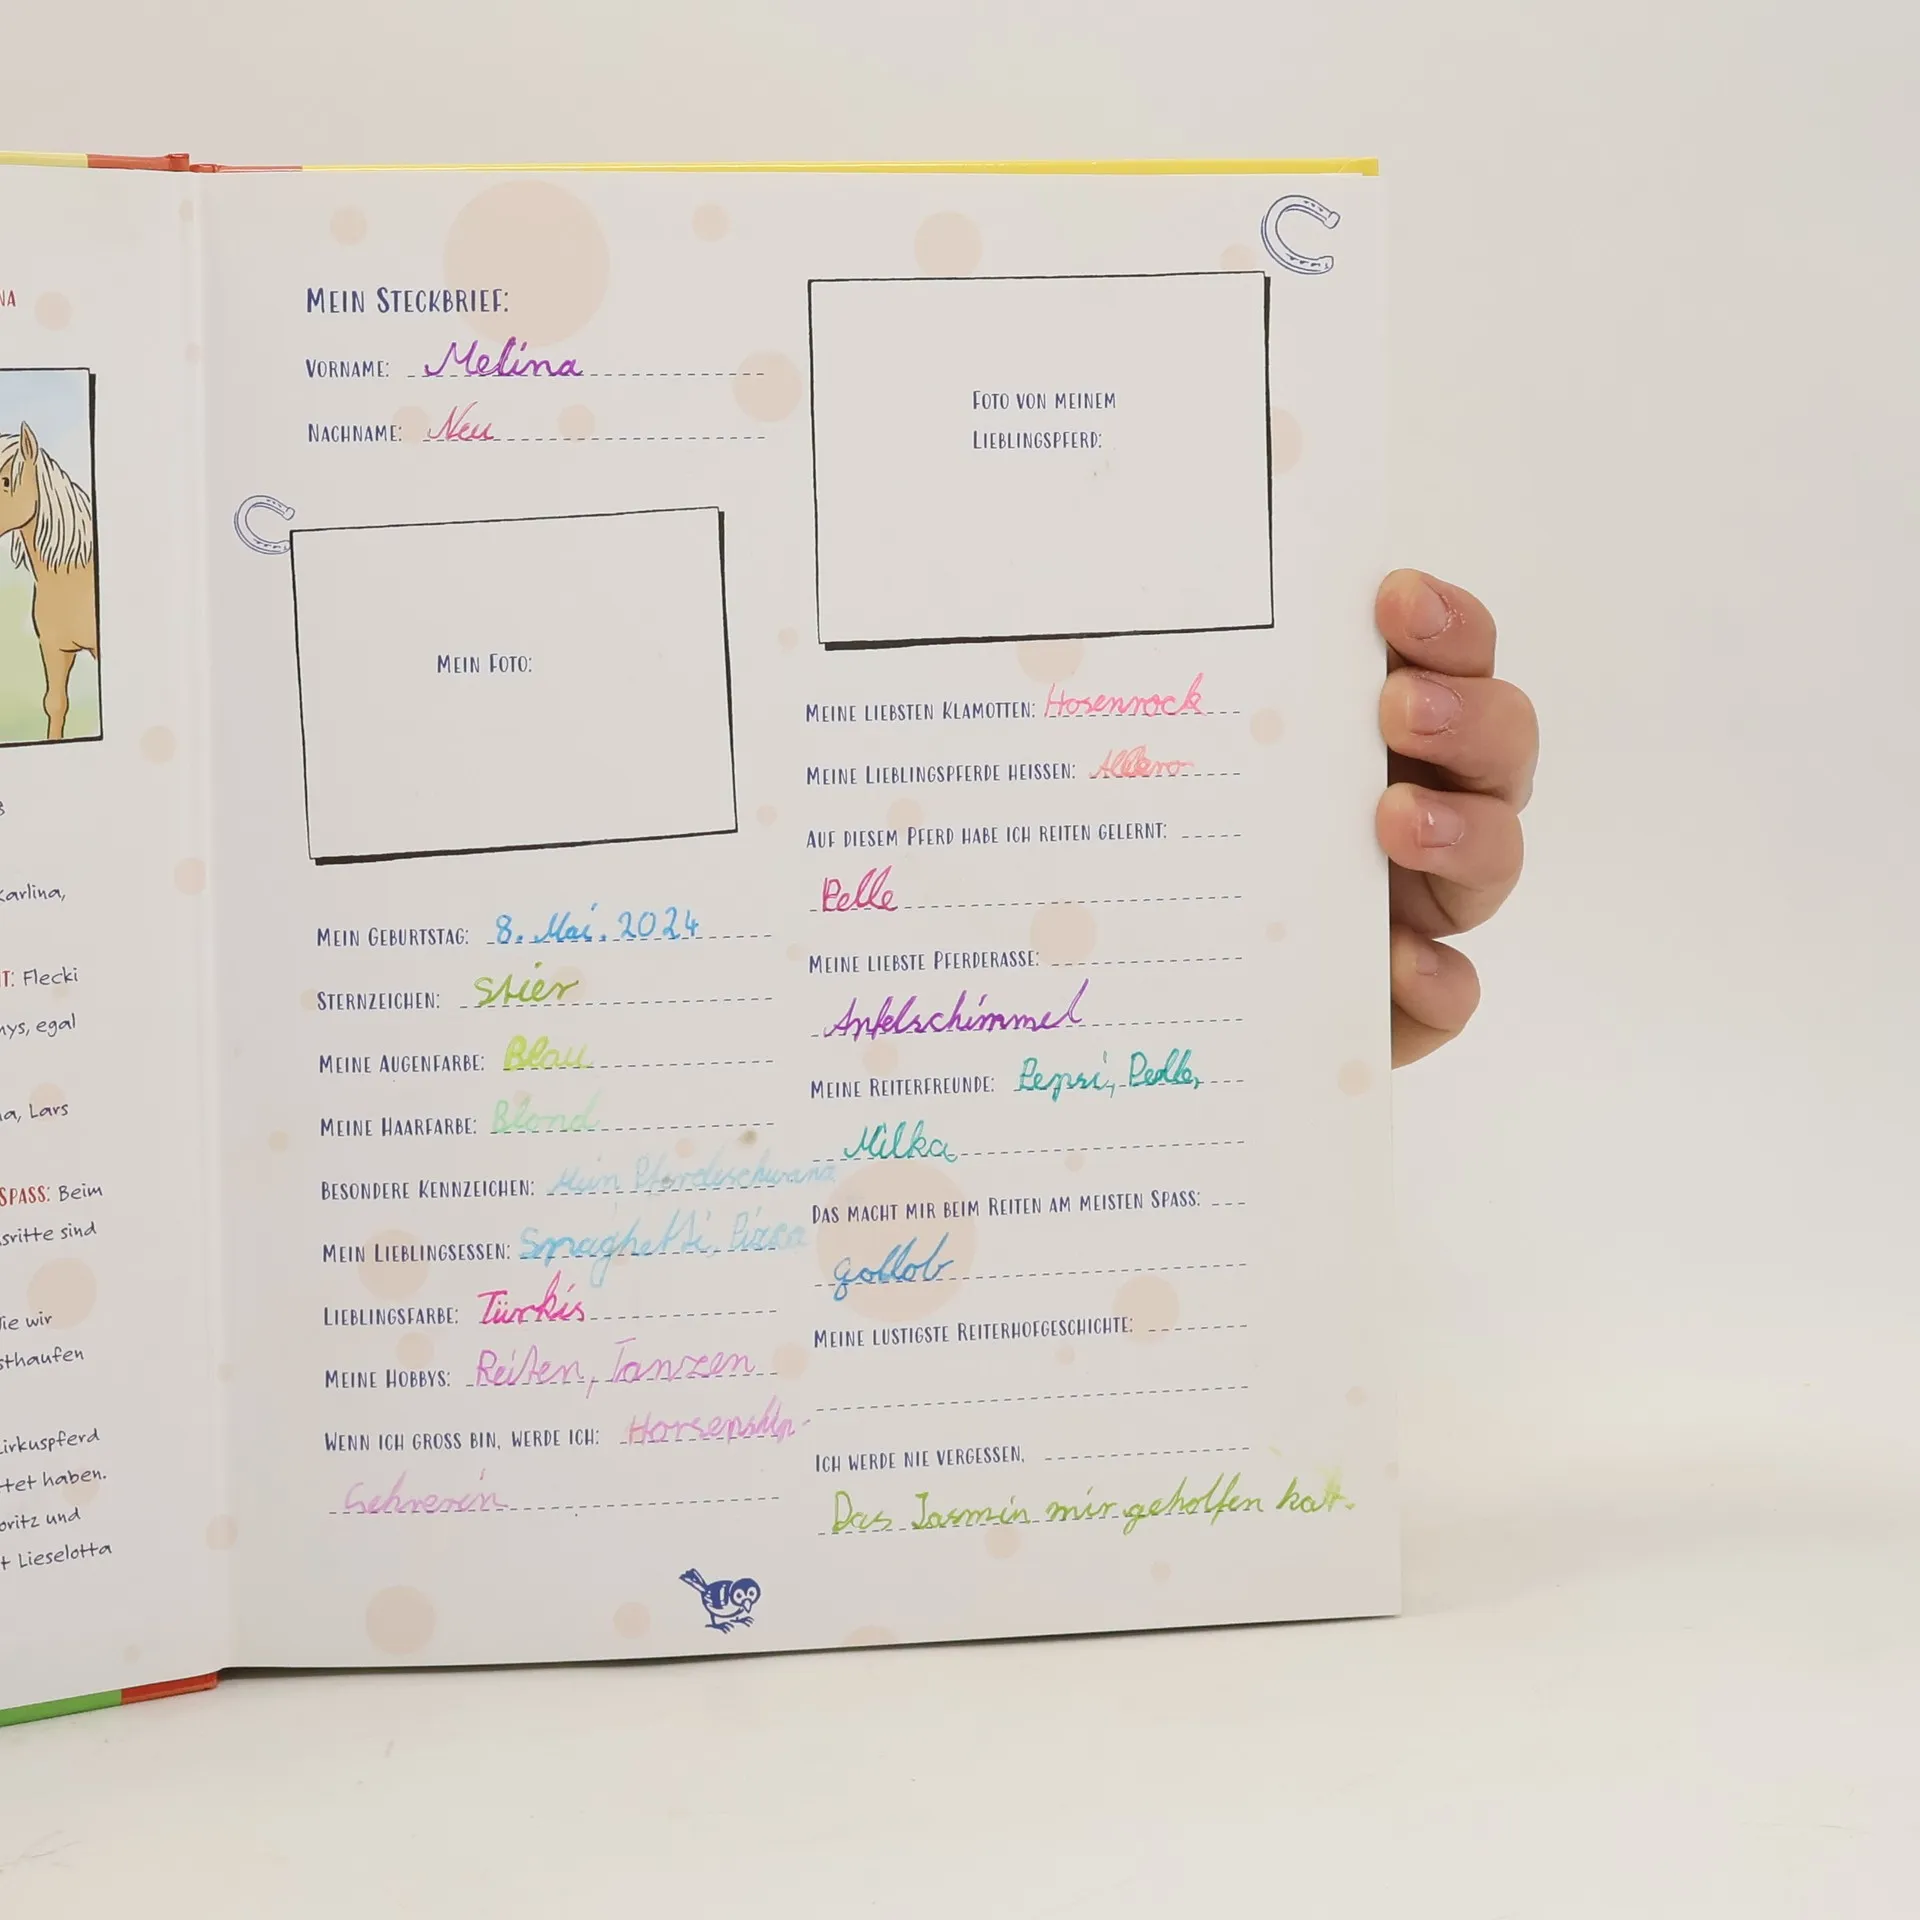 NA
karlina,
T: Flecki
nys, egal
na, Lars
SPASS: Beim
sritte sind
Tie wir
sthaufen
Zirkuspferd
tet haben.
oritz und
t Lieselotta
MEIN STECKBRIEF:
VORNAME: Melina
NACHNAME: Neu
MEIN FOTO:
MEIN GEBURTSTAG: 8. Mai. 2024
STERNZEICHEN: Stier
MEINE AUGENFARBE: Blau
MEINE HAARFARBE: Blond
BESONDERE KENNZEICHEN: Mein Pferdeschwanz
MEIN LIEBLINGSESSEN: Spaghetti, Pizza
LIEBLINGSFARBE: Türkis
MEINE HOBBYS: Reiten, Tanzen
WENN ICH GROSS BIN, WERDE ICH:
FOTO VON MEINEM
LIEBLINGSPFERD:
MEINE LIEBSTEN KLAMOTTEN: Hosenrock
MEINE LIEBLINGSPFERDE HEISSEN:
AUF DIESEM PFERD HABE ICH REITEN GELERNT:
Pelle
MEINE LIEBSTE PFERDERASSE:
Apfelschimmel
MEINE REITERFREUNDE: Pepsi, Pedle,
Milka
DAS MACHT MIR BEIM REITEN AM MEISTEN SPASS:
gollob
MEINE LUSTIGSTE REITERHOFGESCHICHTE:
ICH WERDE NIE VERGESSEN,
Das Jasmin mir geholfen hat.